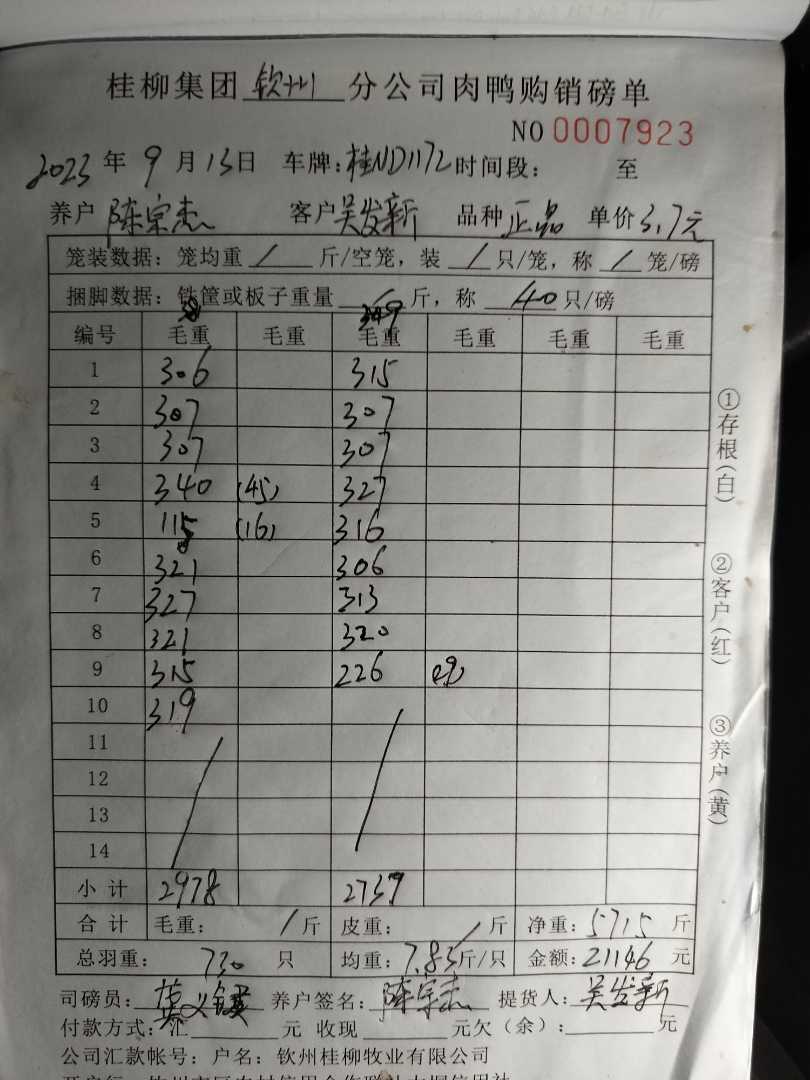 桂柳集团钦州分公司肉鸭购销磅单
NO 0007923
2023年9月13日 车牌:桂ND1172 时间段: 至
养户 陈宗杰 客户 吴发新 品种 正品 单价 3.7元
笼装数据: 笼均重 / 斤/空笼, 装 / 只/笼, 称 / 笼/磅
捆脚数据: 铁筐或板子重量 / 斤, 称 40 只/磅
编号 毛重 毛重 毛重 毛重 毛重 毛重
1 306 315
2 307 307
3 307 307
4 340 (45) 327
5 115 (16) 316
6 321 306
7 327 313
8 321 320
9 315 226
10 319
11
12
13
14
小计 2978 2737
合计 毛重: / 斤 皮重: / 斤 净重: 5715 斤
总羽重: 730 只 均重: 7.83斤/只 金额: 21146 元
司磅员: 养户签名: 陈宗杰 提货人: 吴发新
付款方式: 汇 元 收现 元欠(余): 元
公司汇款帐号: 户名: 钦州桂柳牧业有限公司
①存根(白)
②客户(红)
③养户(黄)